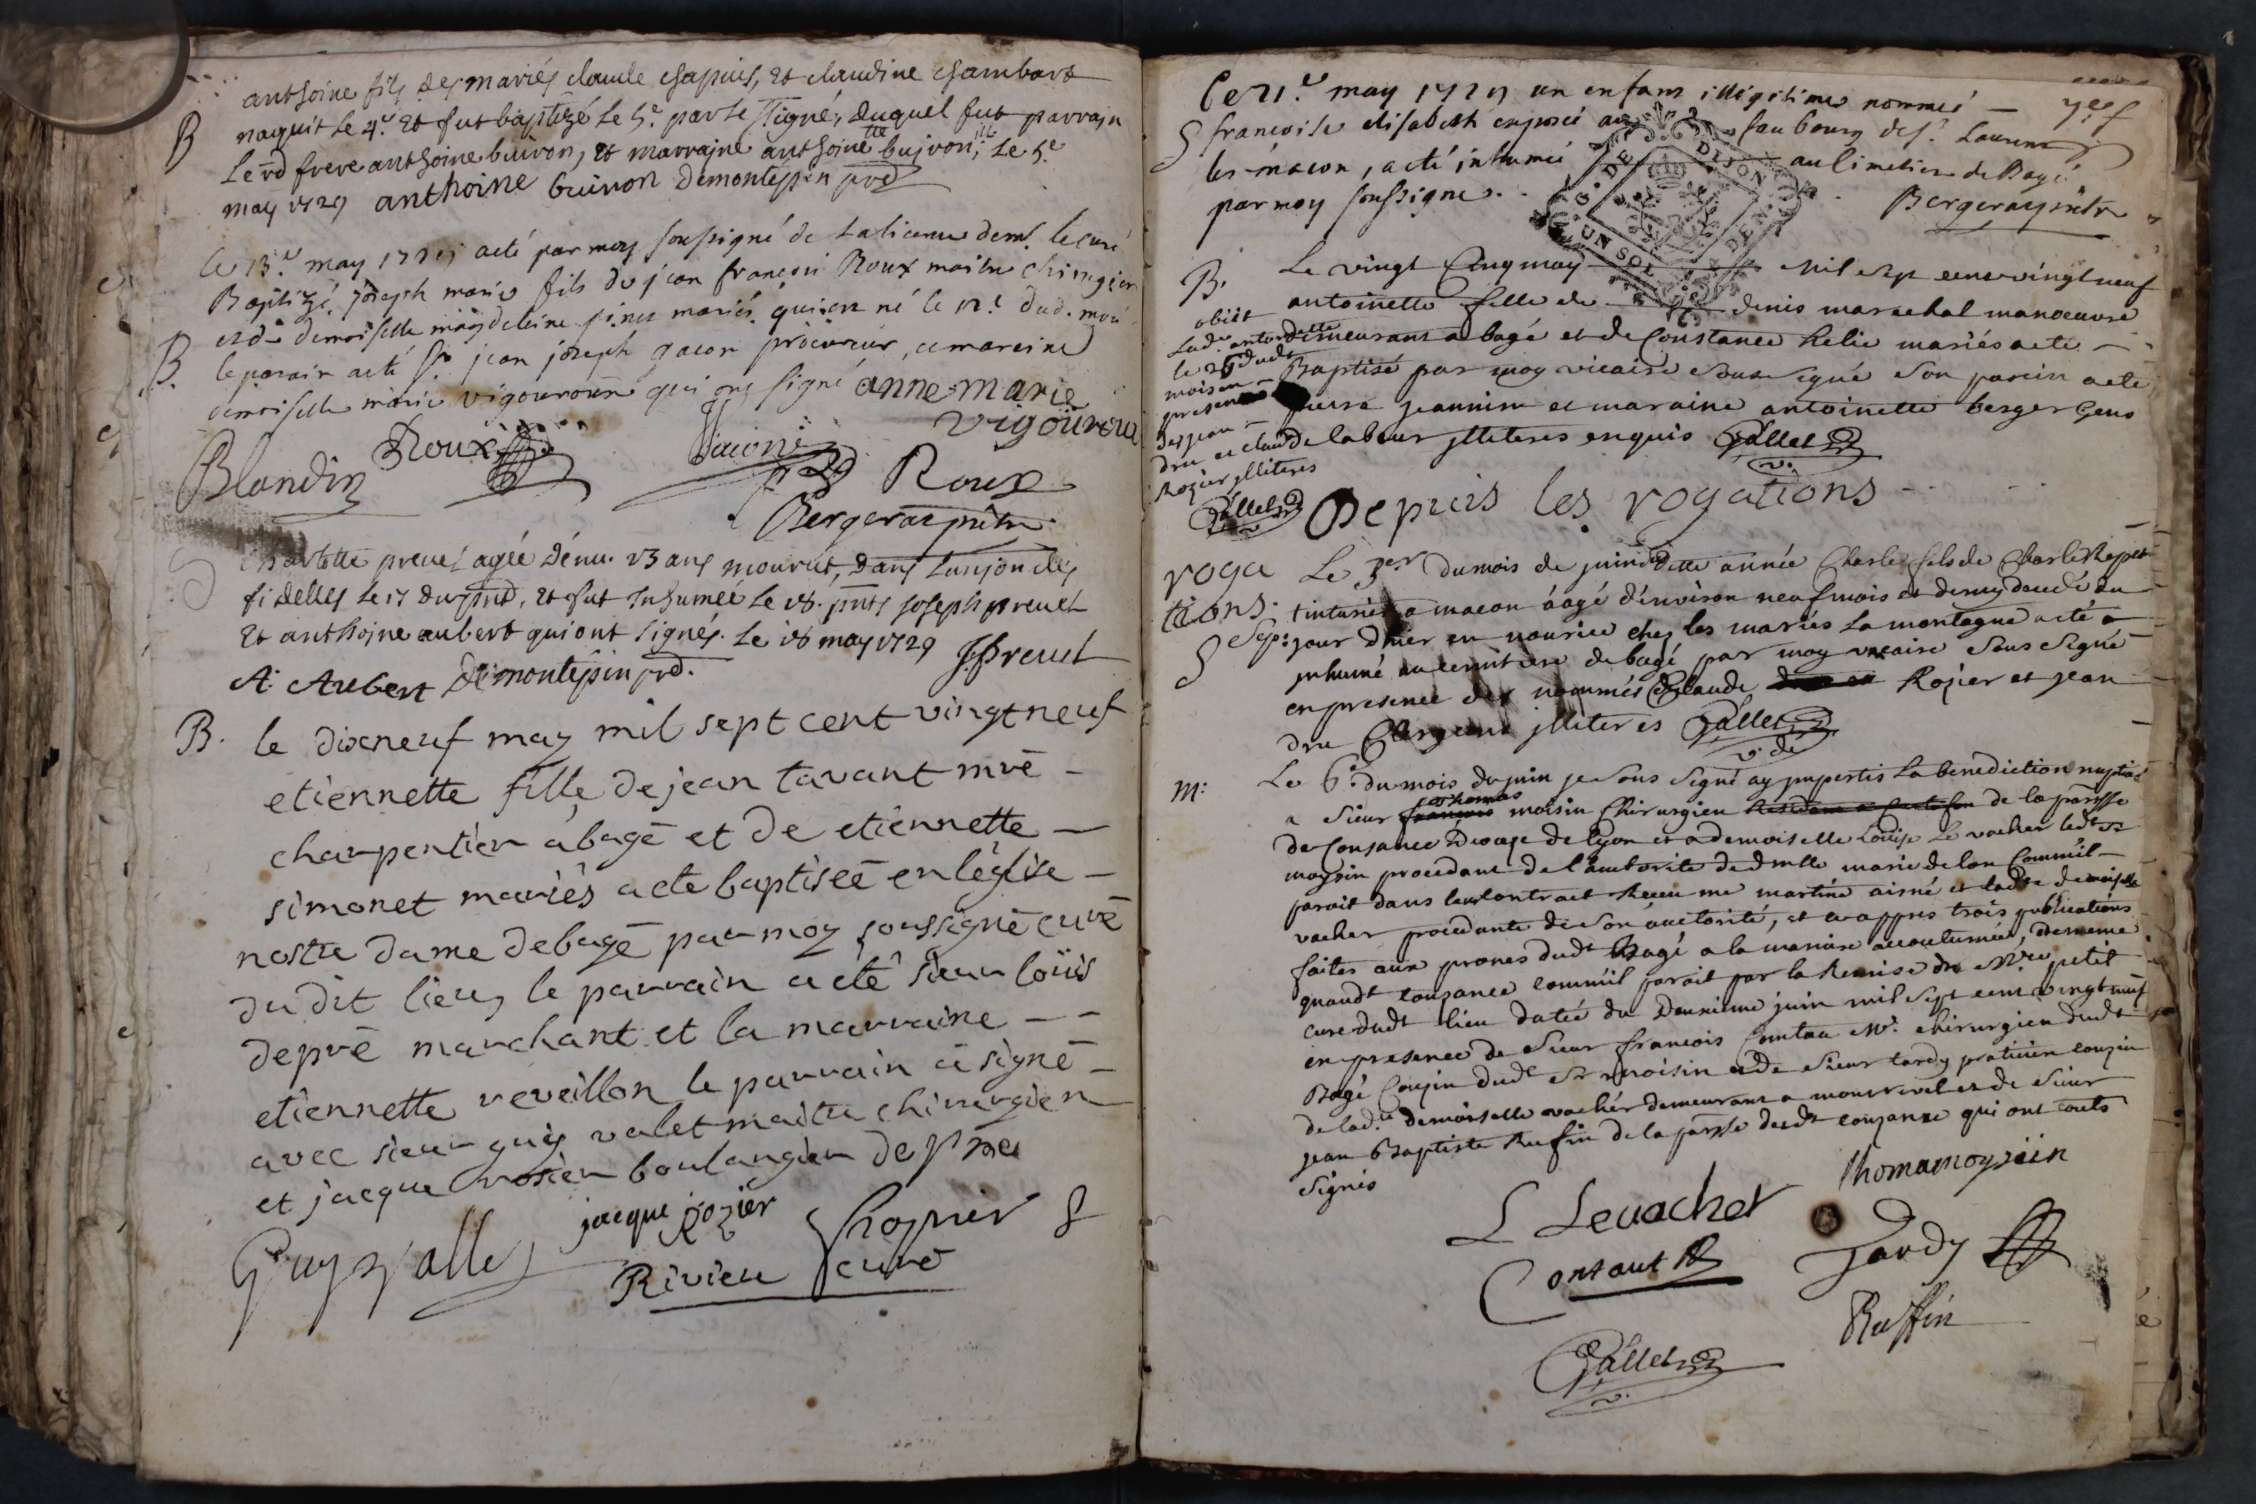 anthoine fils des mariés claude chapuis, et claudine chambart
B naquit le 4e. et fut baptizé le 5e. par le signé, duquel fut parrain
le rd frere anthoine buiron, et marrajne anthoinette bujron, ill. le 5e
may 1729 anthoine buiron Demontespin prd
le 13e. may 1729 acté par moy soussigné de la licence de mr. le curé
Baptizé joseph marie fils de jean françois Roux maitre chirugien
et de demoiselle magdeleine mariés qui est né le 12e dud. mois
B. le parain acté Sr jean joseph gacon procureur, et mareine
demoiselle marie vigouroux qui ont signé anne marie
vigouroux
Blandin Roux Gacon
Roux
Bergerat prêtre
Charlotte preuet agée dénv. 23 ans mourut, dans lunjon des
fidelles le 17 du pnt, et fut inhumée le 18. pnts joseph preuet
et anthoine aubert qui ont signés. Le 18 may 1729 J. Preuet
A. Aubert Demontespin prd.
B. le dixneuf may mil sept cent vingt neuf
etiennette fille de jean tavant mre
charpentier a bagé et de etiennette
simonet mariés a ete baptisée en léglise
nostre dame de bagé par moy soussigné curé
du dit lieu, le parrain a été sieur loüis
depré marchant et la marraine
etiennette reveillon le parrain a signé
avec sieur guy valet maitre chirurgien
et jacque rosier boulangier depré
Guy Valle jacque rozier
Rivieu curé
Ce 21.e may 1729 un enfant illégitime nommé
S françoise elisabeth exposé au faubourg de st. Laurent
les macon, a eté inhumé au cimetiere de Bagé
par moy soussigné. Bergerat prêtre
G. DE DIJON
UN SOL DEN.
B. Le vingt Cinq may mil sept cens vingt neuf
antoinette fille de denis marechal manoeuvre
demeurant a bagé et de Constance helie mariés a ete
Baptisé par moy vicaire sous signé son parein a ete
pierre jeannin et maraine antoinette berger gens
de labeur jlliteres enquis Gallet
v.
obiit
lade. antoinette
le 26 dudt
mois en
presence
des jean
dru et claude
Rozier jlliteres
Gallet
v
Depuis les rogations
roga
tions.
Sep:
S
Le 3er du mois de juin dette année Charle fils de Charle
tinturier a macon áagé d'environ neuf mois et demy decedé du
jour d'hier en nourice chez les mariés La montagne a eté
inhumé au cemitiere de bagé par moy vicaire sous signé
en presence des nommés Claude Rozier et jean
dru jlliteres Gallet
v. de
m: Le 6e. du mois de juin je sous signé ay jmpertis La benediction nuptialle
a Sieur thomas moisin Chirurgien de la parsse
de Consance Diocese de Lyon et a demoiselle Louise Le vacher ledt Sr
moysin procedant de l'authorité de dmlle marie delan Comme il
paroit dans leur Contract Receu me martine aisné et ladte demoiselle
vacher procedante de Son auctorité, et ce appres trois publications
faites aux prones dudt Bagé a la maniere accoutumée, de meme
quaudt Consance comme il paroit par la Remise de Mre petit
curé dudt lieu datée du Deuxieme juin mil Sept cent vingt neuf
en presence de Sieur francois Contau Mr. chirurgien dudt
Bagé Cousin dudt Sr moisin et de Sieur tardy praticien cousin
de lade. demoiselle vachér demeurant a montrevel et de Sieur
jean Baptiste Ruffin de la parsse dudt consance qui ont touts
Signés
L Levacher Thomamoyziin
Contaut Tardy
Ruffin
Gallet
v.